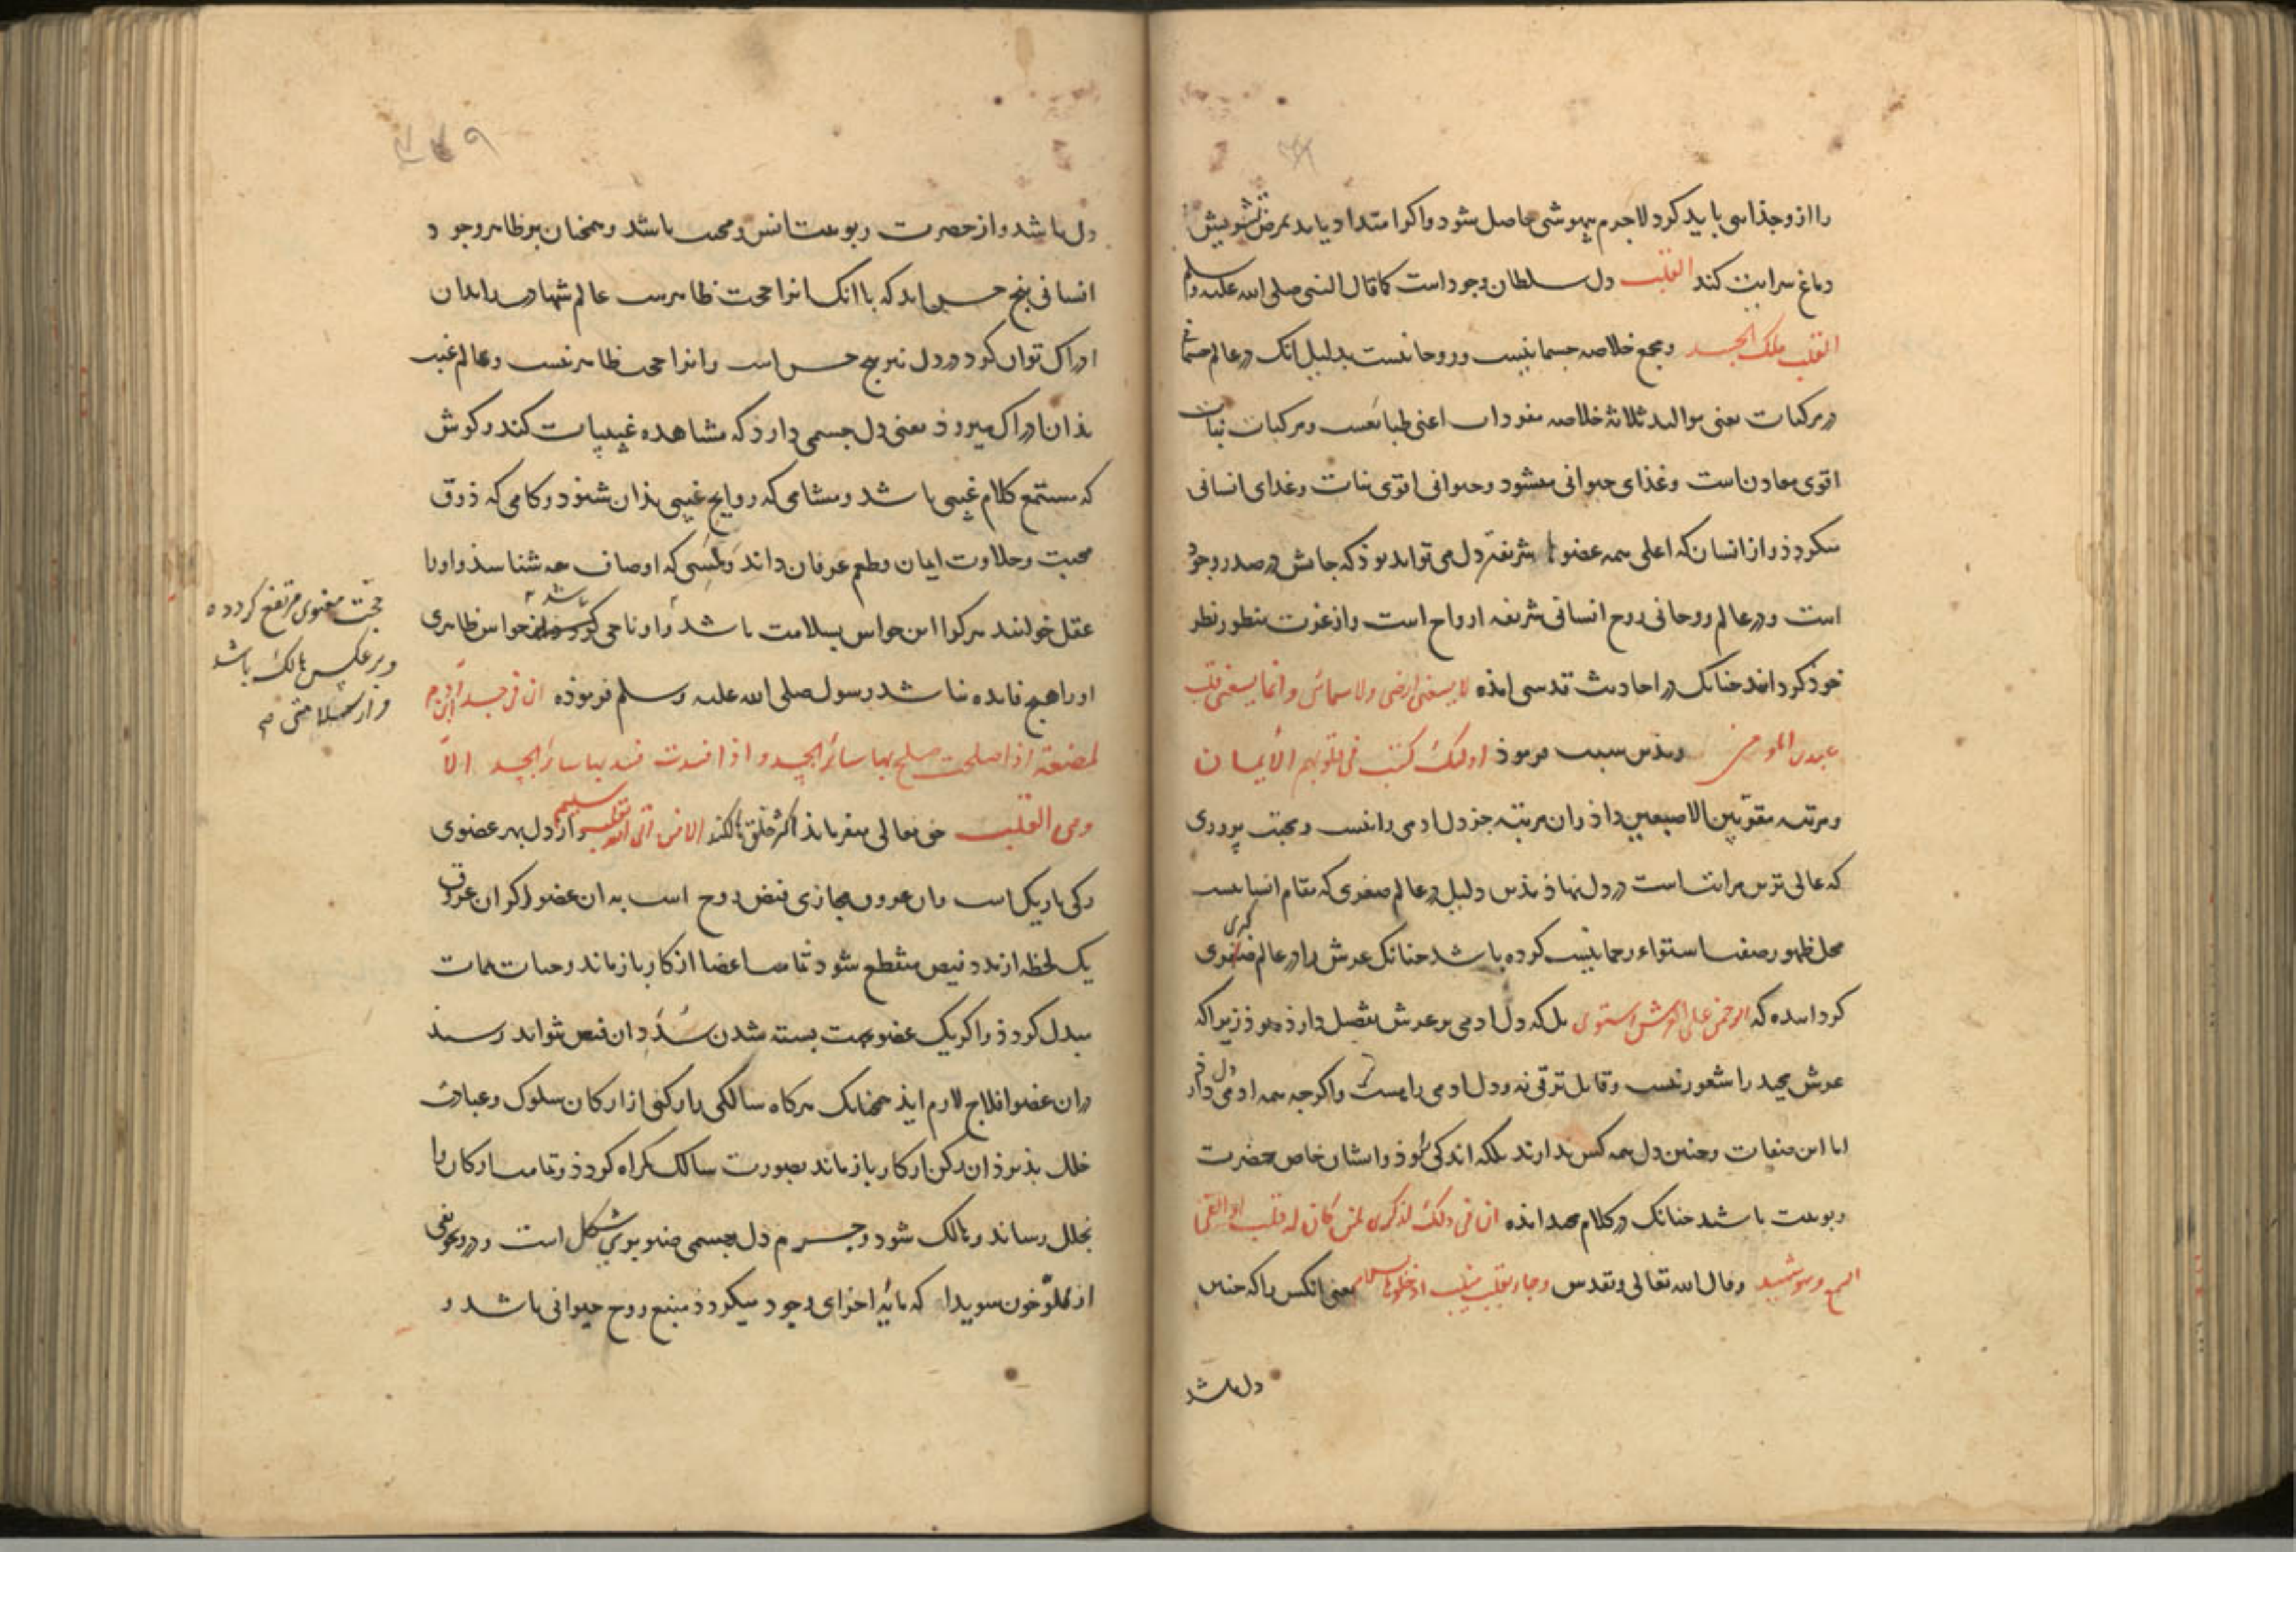 را از وجذاسی باید کرد لاجرم بیهوشی حاصل شود و اکر امتداد یابد بمرض تشویش
دماغ سرایت کند القلب دل سلطان وجود است کما قال النبی صلی الله علیه وسلم
القلب ملک الجسد و مجمع خلاصه جسمانیست و روحانیست بدلیل انک در عالم جسمانی
در مرکبات یعنی موالید ثلاثه خلاصه مفردات اعنی طبایعست و مرکبات نبات
اقوی معادن است و غذای حیوانی میشود و حیوانی اقوی نبات و غذای انسانی
میکردذ و از انسان که اعلی همه عضوها شریفتر دل می تواند بوذ که جایش در صدر وجود
است و در عالم روحانی روح انسانی شریفه ارواح است و از غوت منظور نظر
خوذ کردانند چنانک در احادیث قدسی امذه لا یسعنی ارضی ولا سمائی وانما یسعنی قلب
عبدی المومن و بذین سبب فرموذ اولئک کتب فی قلوبهم الایمان
و مرتبه مقرّبین الاصبعین داذ و ان مرتبه جز دل ادمی را نیست و محبت پروری
که عالی ترین مراتب است در دل نهاذ بذین دلیل در عالم صغری که مقام انسانیست
محل ظهور صفت استواء رحمانیت کرده باشد چنانک عرش را در عالم کبری
کردانیده که الرحمن علی العرش استوی بلکه دل ادمی بر عرش تفضیل دارذ و بوذ زیرا که
عرش مجید را شعور نیست و قابل ترقی نه و دل ادمی را هست و اکرچه همه ادمی دل دارد
اما این صفات و چنین دل همه کس ندارند بلکه اندکی را بوذ و ایشان خاص حضرت
ربوبیت باشد چنانک در کلام مجید امذه ان فی ذلک لذکری لمن کان له قلب او القی
السمع وهو شهید و قال الله تعالی و تقدس وجاء بقلب منیب ادخلوها بسلام یعنی انکس را که چنین
دل باشد
دل باشد و از حضرت ربوبیت انس و محبت باشد و همچنان بر ظاهر وجود
انسانی پنج حس اند که با انک انرا حجت ظاهرست عالم شهادت بدان
ادراک توان کرد در دل نیز پنج حس است و انرا حجت ظاهر نیست و عالم غیب
بذان ادراک میروذ یعنی دل چسمی دارذ که مشاهده غیبیات کند و کوش
که مستمع کلام غیبی باشد و مشامی که روایح غیبی بذان شنوذ و کامی که ذوق
محبت و حلاوت ایمان و طعم عرفان داند و لمسی که اوصاف همه شناسذ و او را
عقل خوانند هرکرا این حواس بسلامت باشد و او ناجی باشد حواس ظاهری
او را هیچ فایده نباشد رسول صلی الله علیه وسلم فرموذه ان فی جسد ابن ادم
لمضغة اذا صلحت صلح بها سائر الجسد و اذا فسدت فسد بها سائر الجسد الا
وهی القلب حق تعالی میفرماید اکثر خلق هالکند الا من اتی الله بقلب سلیم و از دل بهر عضوی
رکی باریک است و ان عروق مجازی فیض روح است به ان عضو اکر ان عرق
یک لحظه از مدد فیض منقطع شود تمامت اعضا از کار باز ماند و حیات بممات
مبدل کردذ و اکر یک عضو بجهت بسته شدن سُدّد ان فیض نتواند رسید
در ان عضو افلاج لازم ایذ همچنانک هرکاه سالکی را رکنی از ارکان سلوک و عبادت
خلل پذیرذ ان رکن از کار باز ماند بصورت سالک کمراه کردذ و تمامت ارکان را
بخلل رساند و هالک شود و جرم دل جسمی صنوبری شکل است و در تجویفی
از مملوّ خون سویدا که مایه اجزای وجود میکردذ منبع روح حیوانی باشد و
حجت معنوی مرتفع کردده
و بر عکس هالک باشد